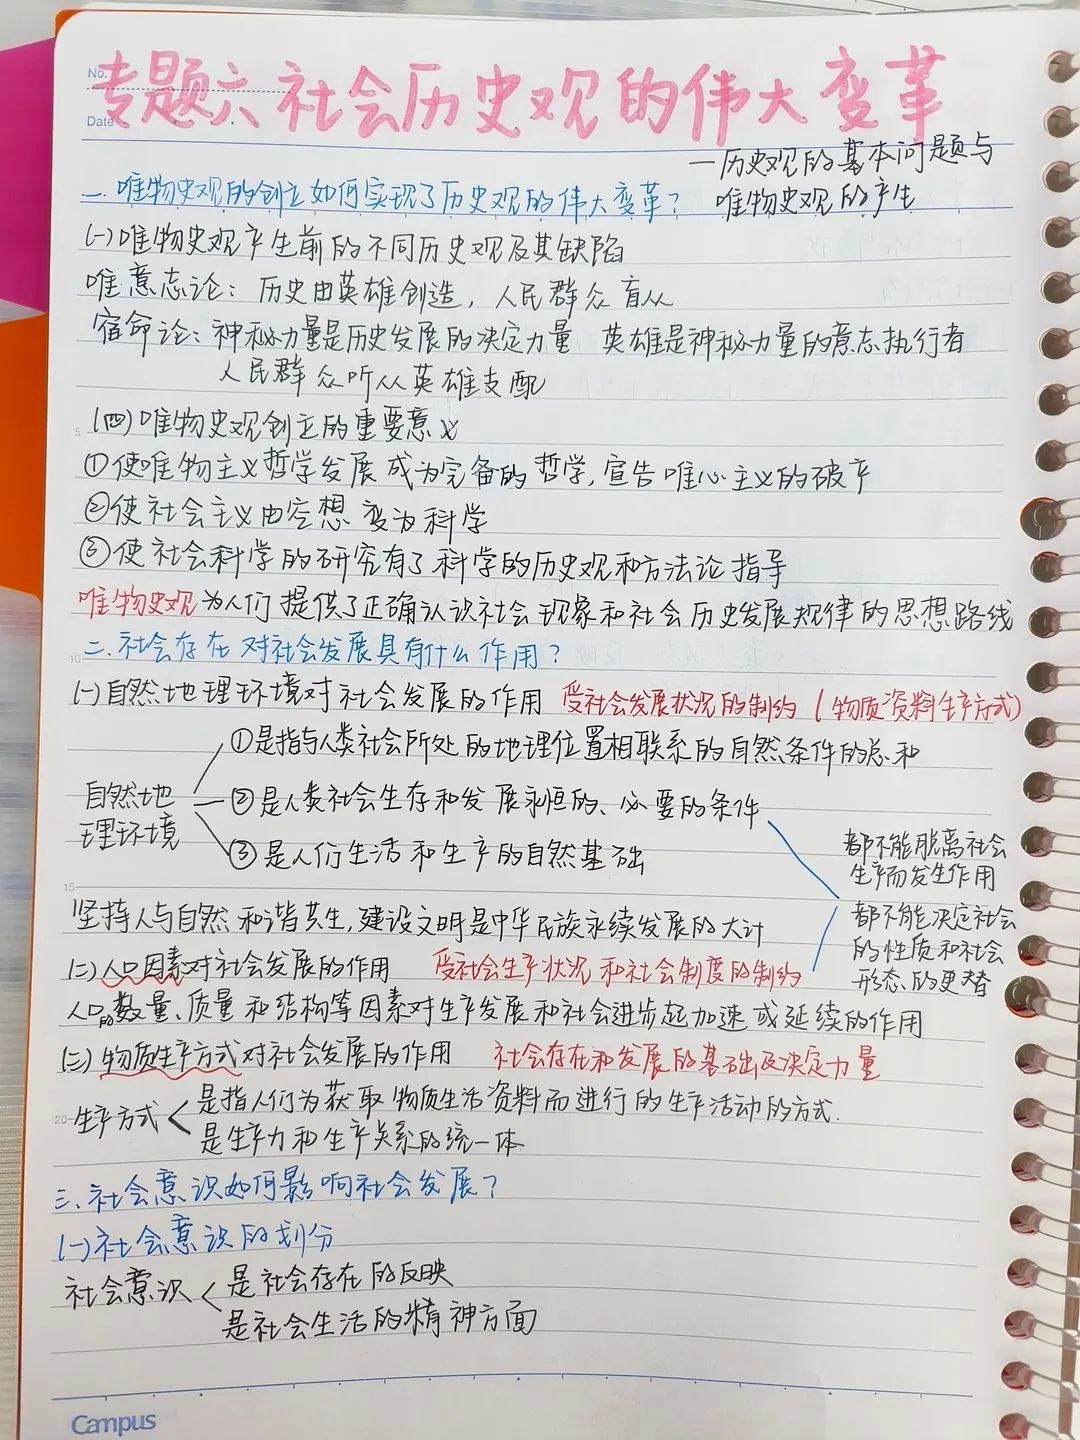 No.
Date
专题六 社会历史观的伟大变革
—历史观的基本问题与
唯物史观的产生
一.唯物史观的创立如何实现了历史观的伟大变革？
(一)唯物史观产生前的不同历史观及其缺陷
唯意志论：历史由英雄创造，人民群众盲从
宿命论：神秘力量是历史发展的决定力量 英雄是神秘力量的意志执行者
人民群众听从英雄支配
(四)唯物史观创立的重要意义
①使唯物主义哲学发展成为完备的哲学，宣告唯心主义的破产
②使社会主义由空想变为科学
③使社会科学的研究有了科学的历史观和方法论指导
唯物史观为人们提供了正确认识社会现象和社会历史发展规律的思想路线
二.社会存在对社会发展具有什么作用？
(一)自然地理环境对社会发展的作用 受社会发展状况的制约（物质资料生产方式）
自然地理环境
①是指与人类社会所处的地理位置相联系的自然条件的总和
②是人类社会生存和发展永恒的、必要的条件
③是人们生活和生产的自然基础
都不能脱离社会
生产而发生作用
都不能决定社会
的性质和社会
形态的更替
坚持人与自然和谐共生,建设文明是中华民族永续发展的大计
(二)人口因素对社会发展的作用 受社会生产状况和社会制度的制约
人口的数量、质量和结构等因素对生产发展和社会进步起加速或延续的作用
(三)物质生产方式对社会发展的作用 社会存在和发展的基础及决定力量
生产方式
是指人们为获取物质生活资料而进行的生产活动的方式.
是生产力和生产关系的统一体
三.社会意识如何影响社会发展？
(一)社会意识的划分
社会意识
是社会存在的反映
是社会生活的精神方面
5
10
15
20
Campus